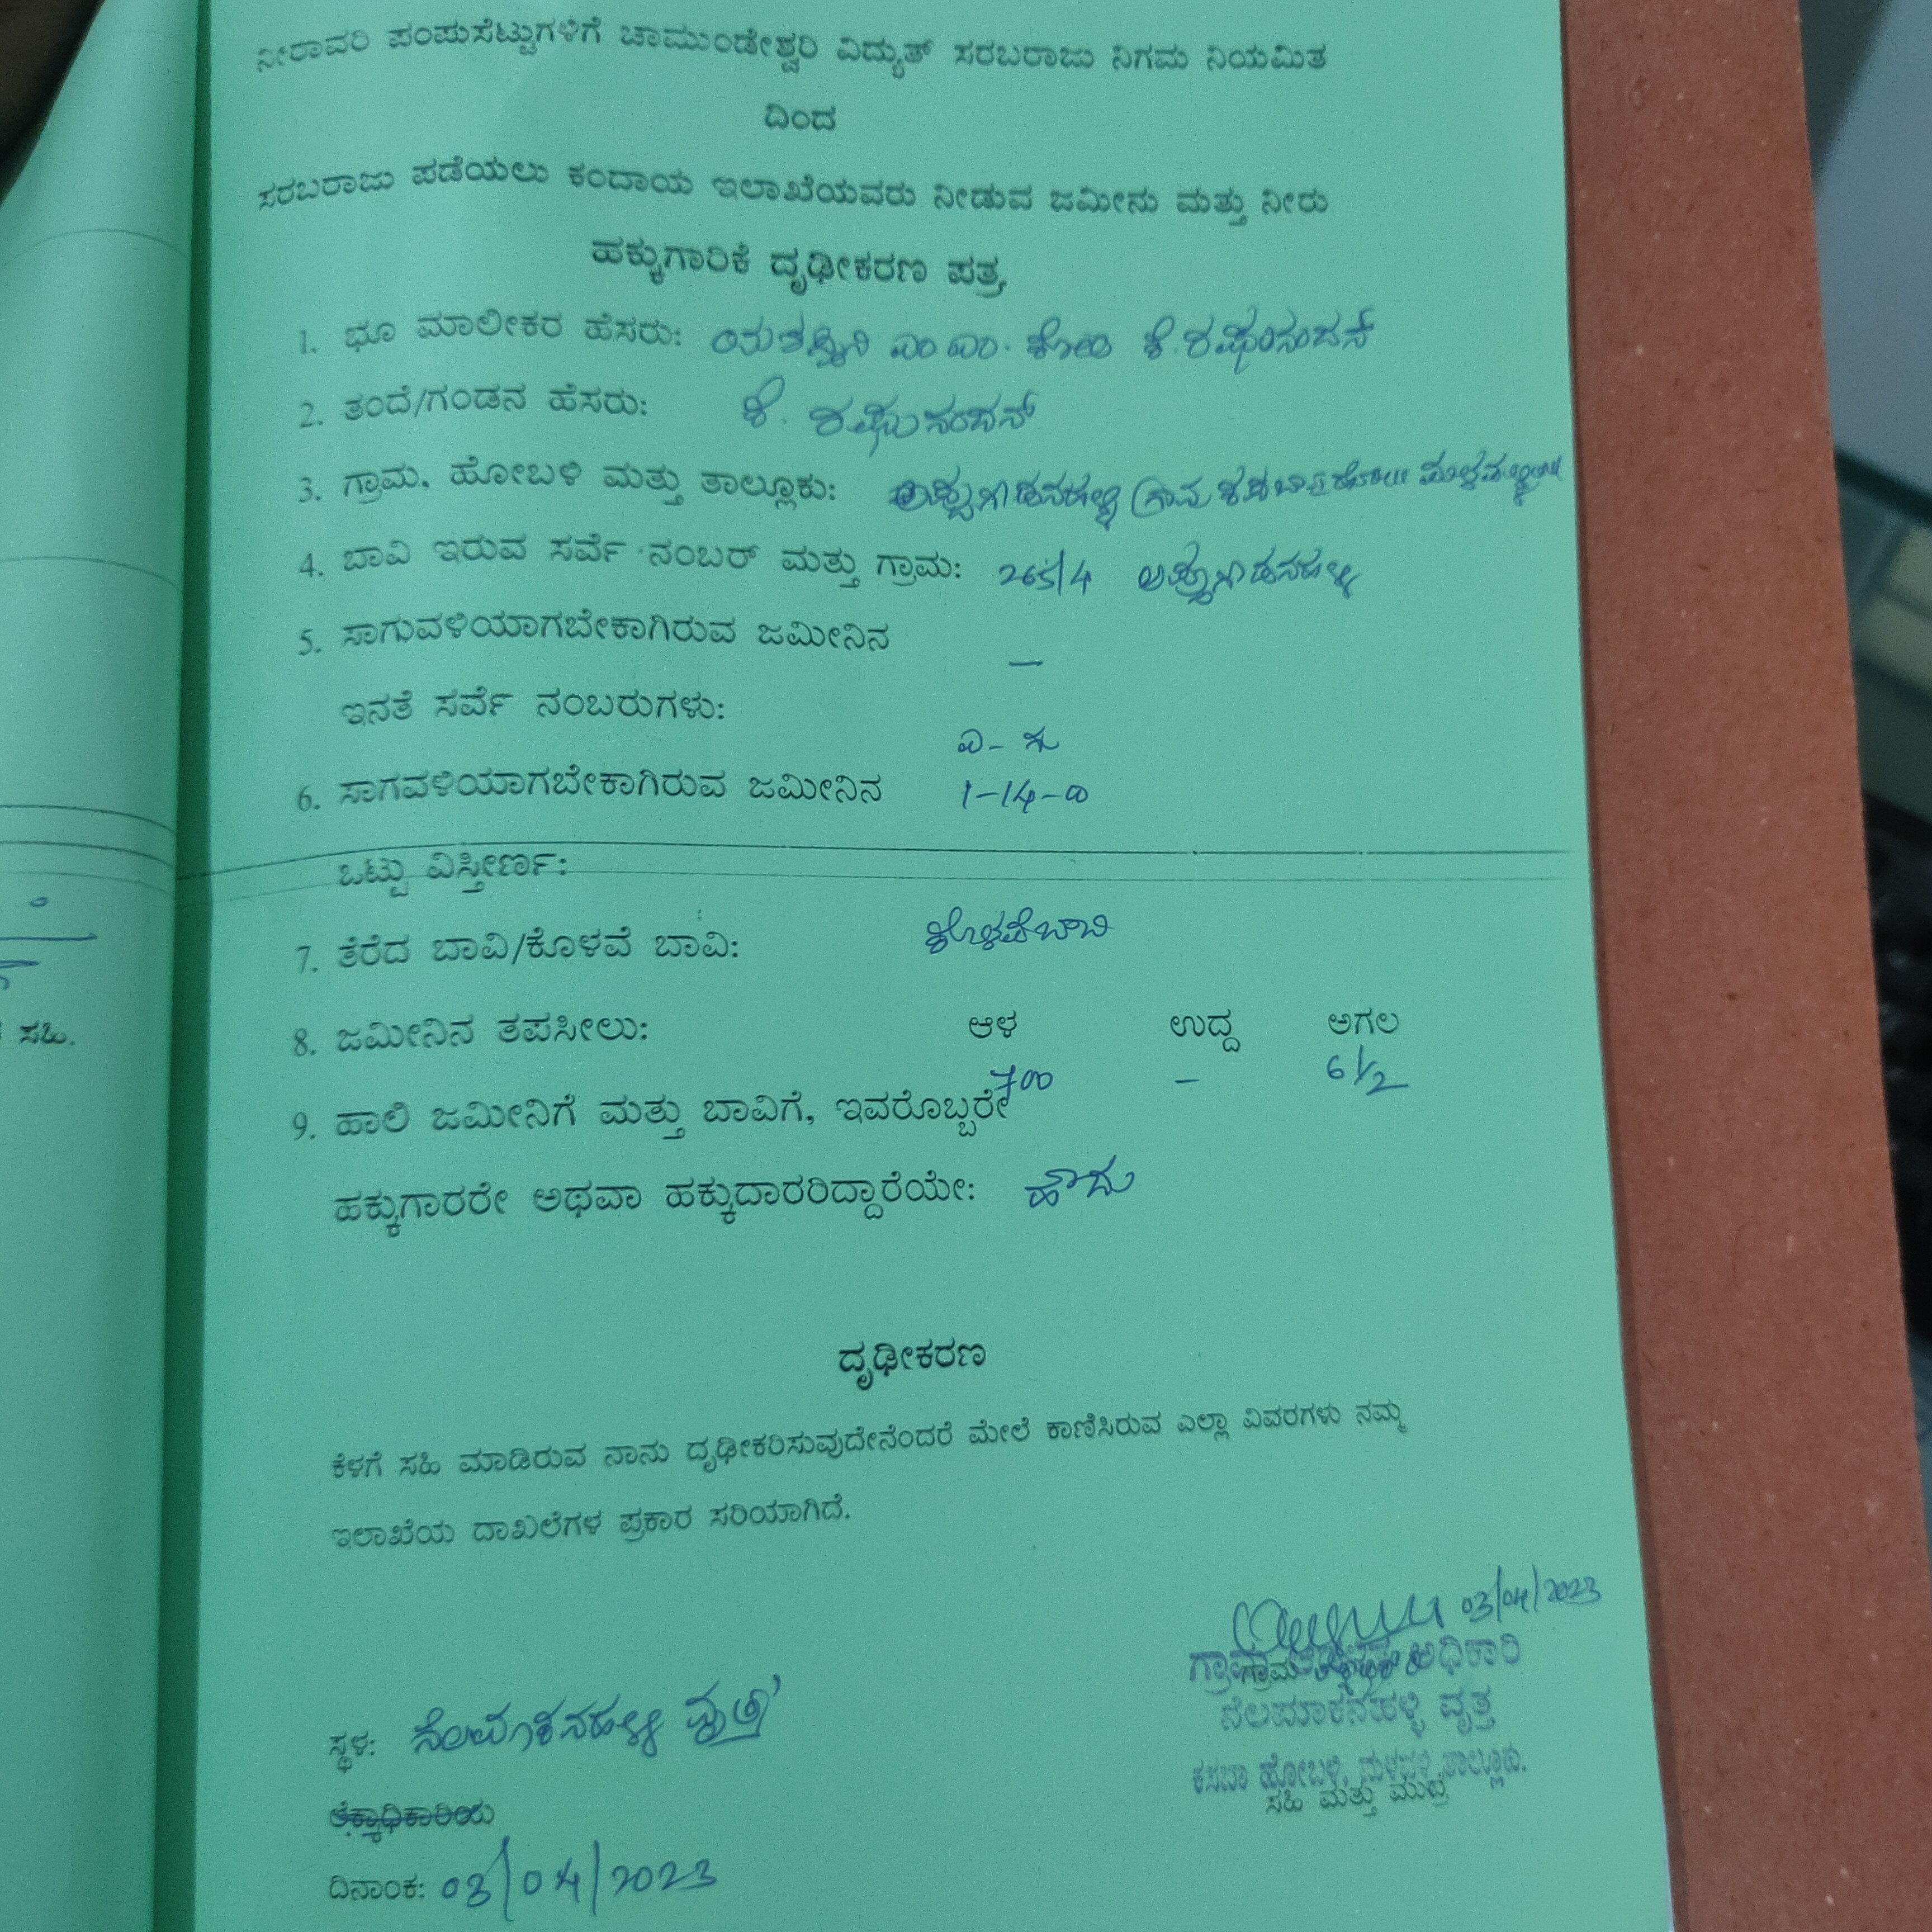 ನೀರಾವರಿ ಪಂಪುಸೆಟ್ಟುಗಳಿಗೆ ಚಾಮುಂಡೇಶ್ವರಿ ವಿದ್ಯುತ್ ಸರಬರಾಜು ನಿಗಮ ನಿಯಮಿತ
ದಿಂದ
ಸರಬರಾಜು ಪಡೆಯಲು ಕಂದಾಯ ಇಲಾಖೆಯವರು ನೀಡುವ ಜಮೀನು ಮತ್ತು ನೀರು
ಹಕ್ಕುಗಾರಿಕೆ ದೃಢೀಕರಣ ಪತ್ರ
1. ಭೂ ಮಾಲೀಕರ ಹೆಸರು: ಯಶಸ್ವಿನಿ ಎಂ ಎಂ. ಕೋಂ ಕೆ. ರಘುನಂದನ್
2. ತಂದೆ/ಗಂಡನ ಹೆಸರು: ಕೆ. ರಘುನಂದನ್
3. ಗ್ರಾಮ, ಹೋಬಳಿ ಮತ್ತು ತಾಲ್ಲೂಕು: ಗ್ರಾಮ ಕಸಬಾ
4. ಬಾವಿ ಇರುವ ಸರ್ವೆ ನಂಬರ್ ಮತ್ತು ಗ್ರಾಮ: 265/4
5. ಸಾಗುವಳಿಯಾಗಬೇಕಾಗಿರುವ ಜಮೀನಿನ –
ಇನತೆ ಸರ್ವೆ ನಂಬರುಗಳು:
ಎ - ಗು
6. ಸಾಗವಳಿಯಾಗಬೇಕಾಗಿರುವ ಜಮೀನಿನ 1-14-00
ಒಟ್ಟು ವಿಸ್ತೀರ್ಣ:
7. ತೆರೆದ ಬಾವಿ/ಕೊಳವೆ ಬಾವಿ: ಕೊಳವೆಬಾವಿ
8. ಜಮೀನಿನ ತಪಸೀಲು: ಆಳ ಉದ್ದ ಅಗಲ
700 – 6 1/2
9. ಹಾಲಿ ಜಮೀನಿಗೆ ಮತ್ತು ಬಾವಿಗೆ, ಇವರೊಬ್ಬರೇ
ಹಕ್ಕುಗಾರರೇ ಅಥವಾ ಹಕ್ಕುದಾರರಿದ್ದಾರೆಯೇ: ಹೌದು
ದೃಢೀಕರಣ
ಕೆಳಗೆ ಸಹಿ ಮಾಡಿರುವ ನಾನು ದೃಢೀಕರಿಸುವುದೇನೆಂದರೆ ಮೇಲೆ ಕಾಣಿಸಿರುವ ಎಲ್ಲಾ ವಿವರಗಳು ನಮ್ಮ
ಇಲಾಖೆಯ ದಾಖಲೆಗಳ ಪ್ರಕಾರ ಸರಿಯಾಗಿದೆ.
03/04/2023
ಗ್ರಾಮ ಅಧಿಕಾರಿ
ನೆಲಮಾಕನಹಳ್ಳಿ ವೃತ್ತ
ಕಸಬಾ ಹೋಬಳಿ, ಮಳವಳ್ಳಿ ತಾಲ್ಲೂಕು.
ಸಹಿ ಮತ್ತು ಮುದ್ರೆ
ಸ್ಥಳ: ನೆಲಮಾಕನಹಳ್ಳಿ ವೃತ್ತ
ದಿನಾಂಕ: 03/04/2023
ಸಹಿ.